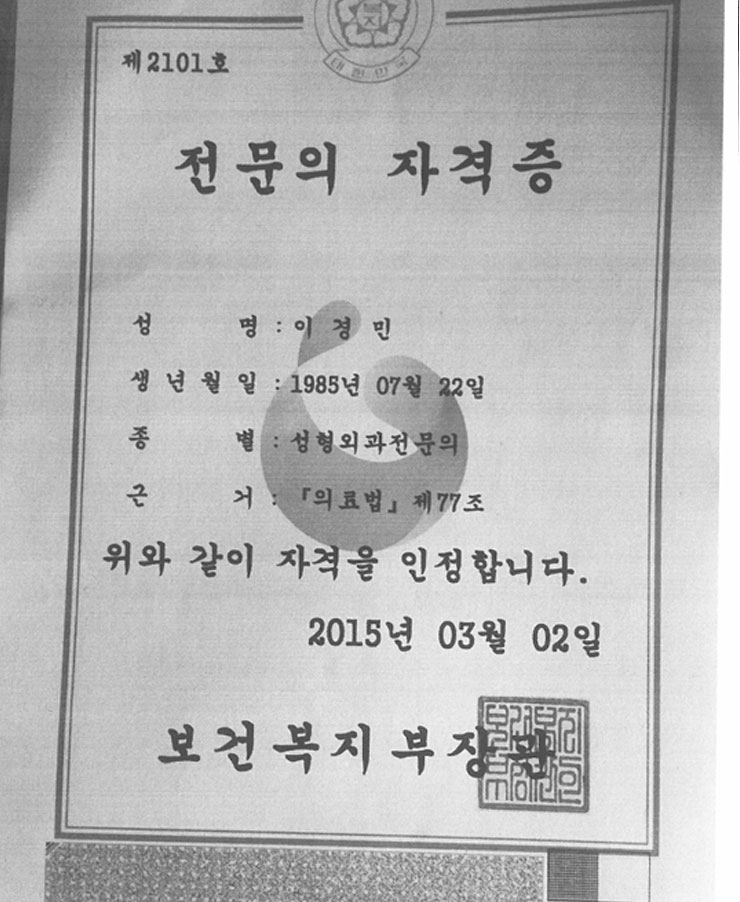 복지
대한민국
제2101호
전문의 자격증
성 명 : 이 경 민
생 년 월 일 : 1985년 07월 22일
종 별 : 성형외과전문의
근 거 : 『의료법』 제77조
위와 같이 자격을 인정합니다.
2015년 03월 02일
보건복지부장관